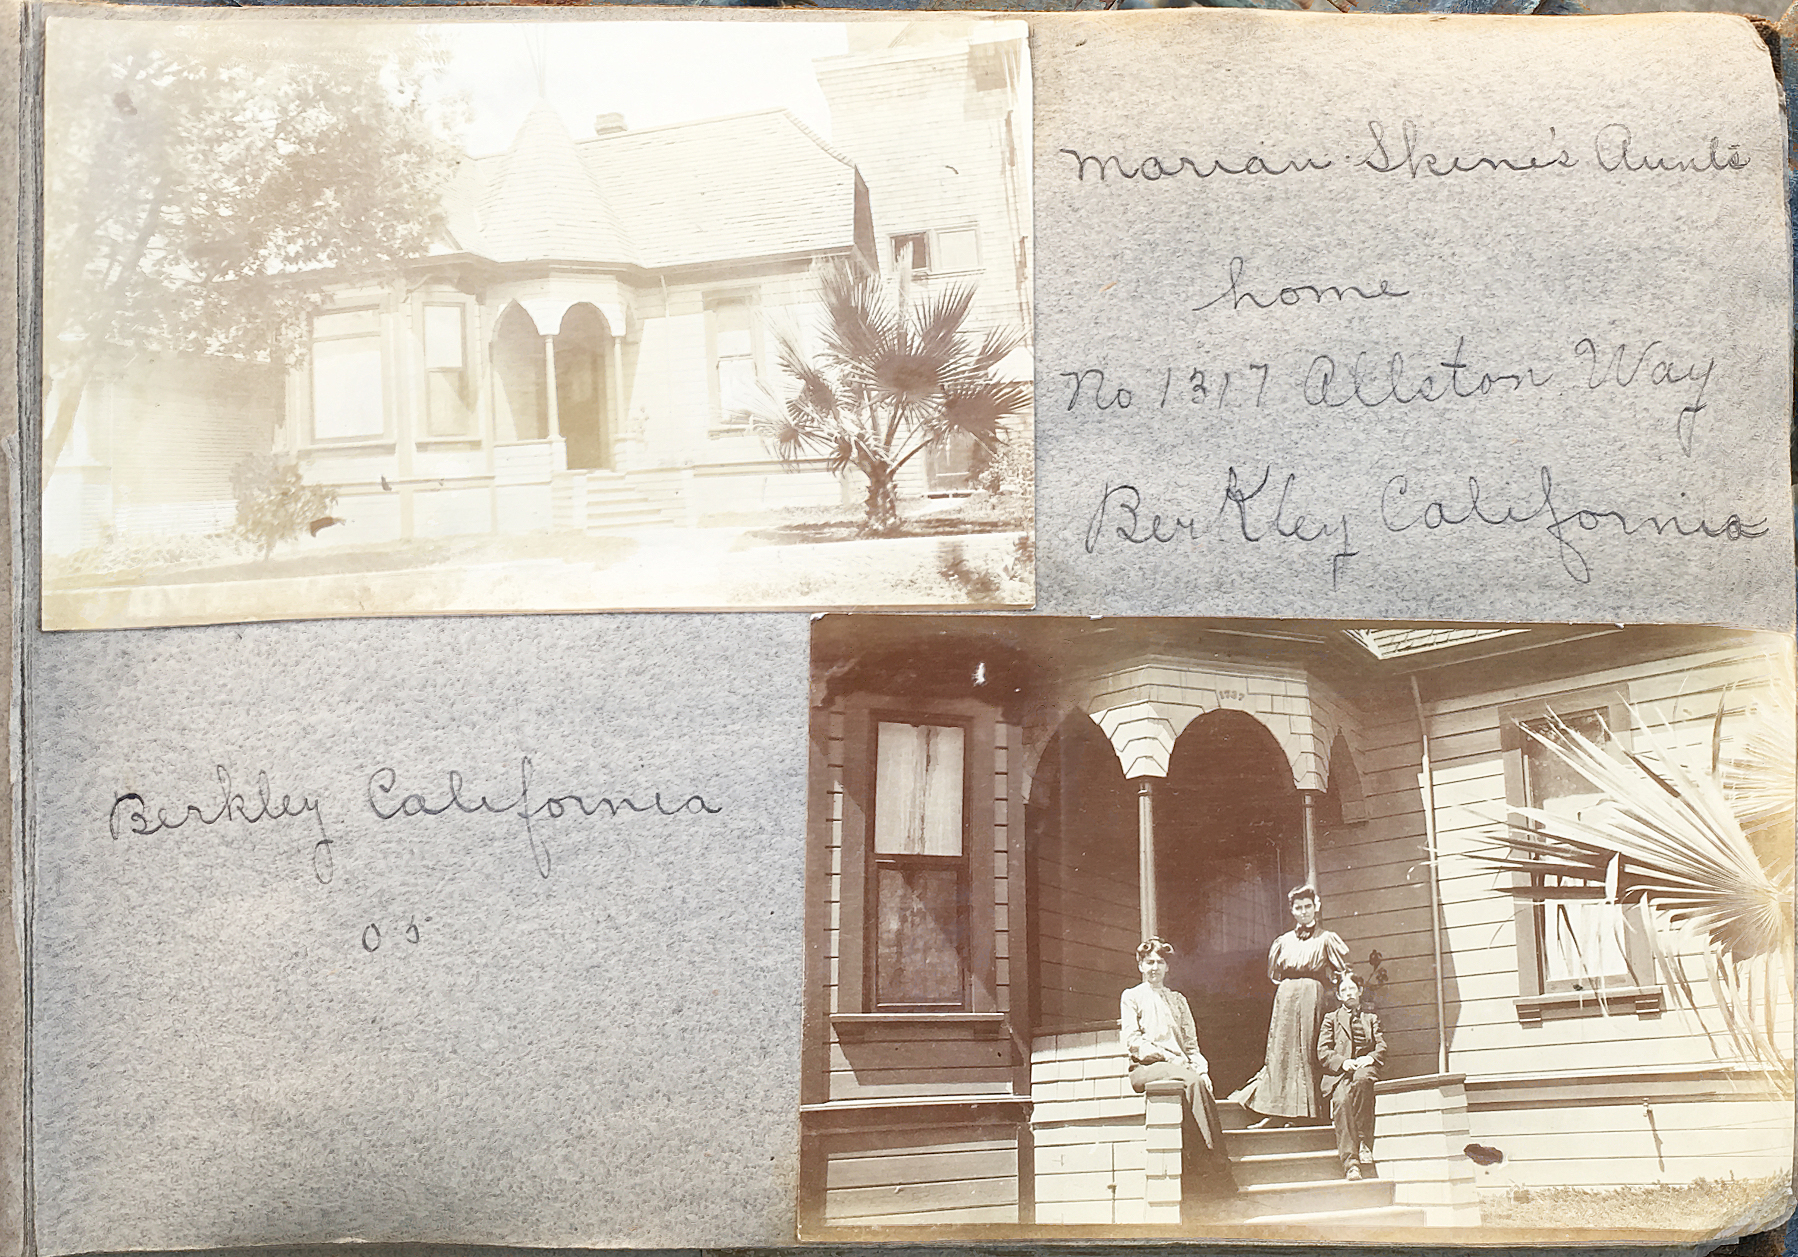 Marian Skene's Aunts
home
No 1317 Allston Way
Berkley California
Berkley California
05